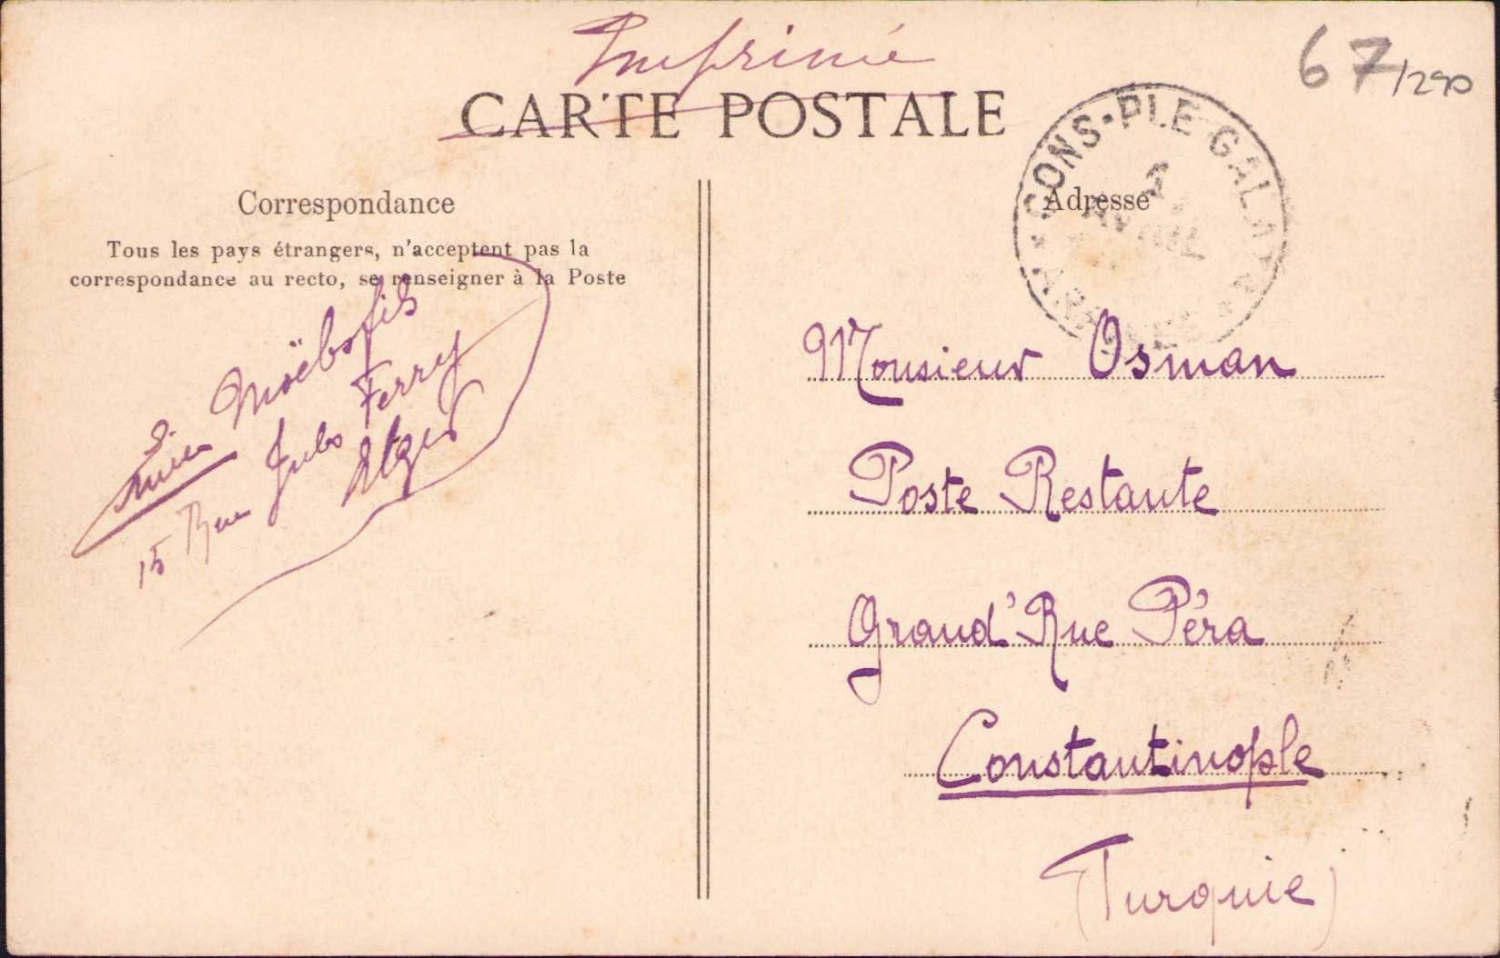 Imprimé
67/290
CARTE POSTALE
CONS-PLE GALATA
AVRIL
ARRIVEE
Correspondance
Adresse
Tous les pays étrangers, n'acceptent pas la
correspondance au recto, se renseigner à la Poste
Moëbs fils
15 Rue Jules Ferry
Alger
Monsieur Osman
Poste Restante
Grand' Rue Péra
Constantinople
(Turquie)